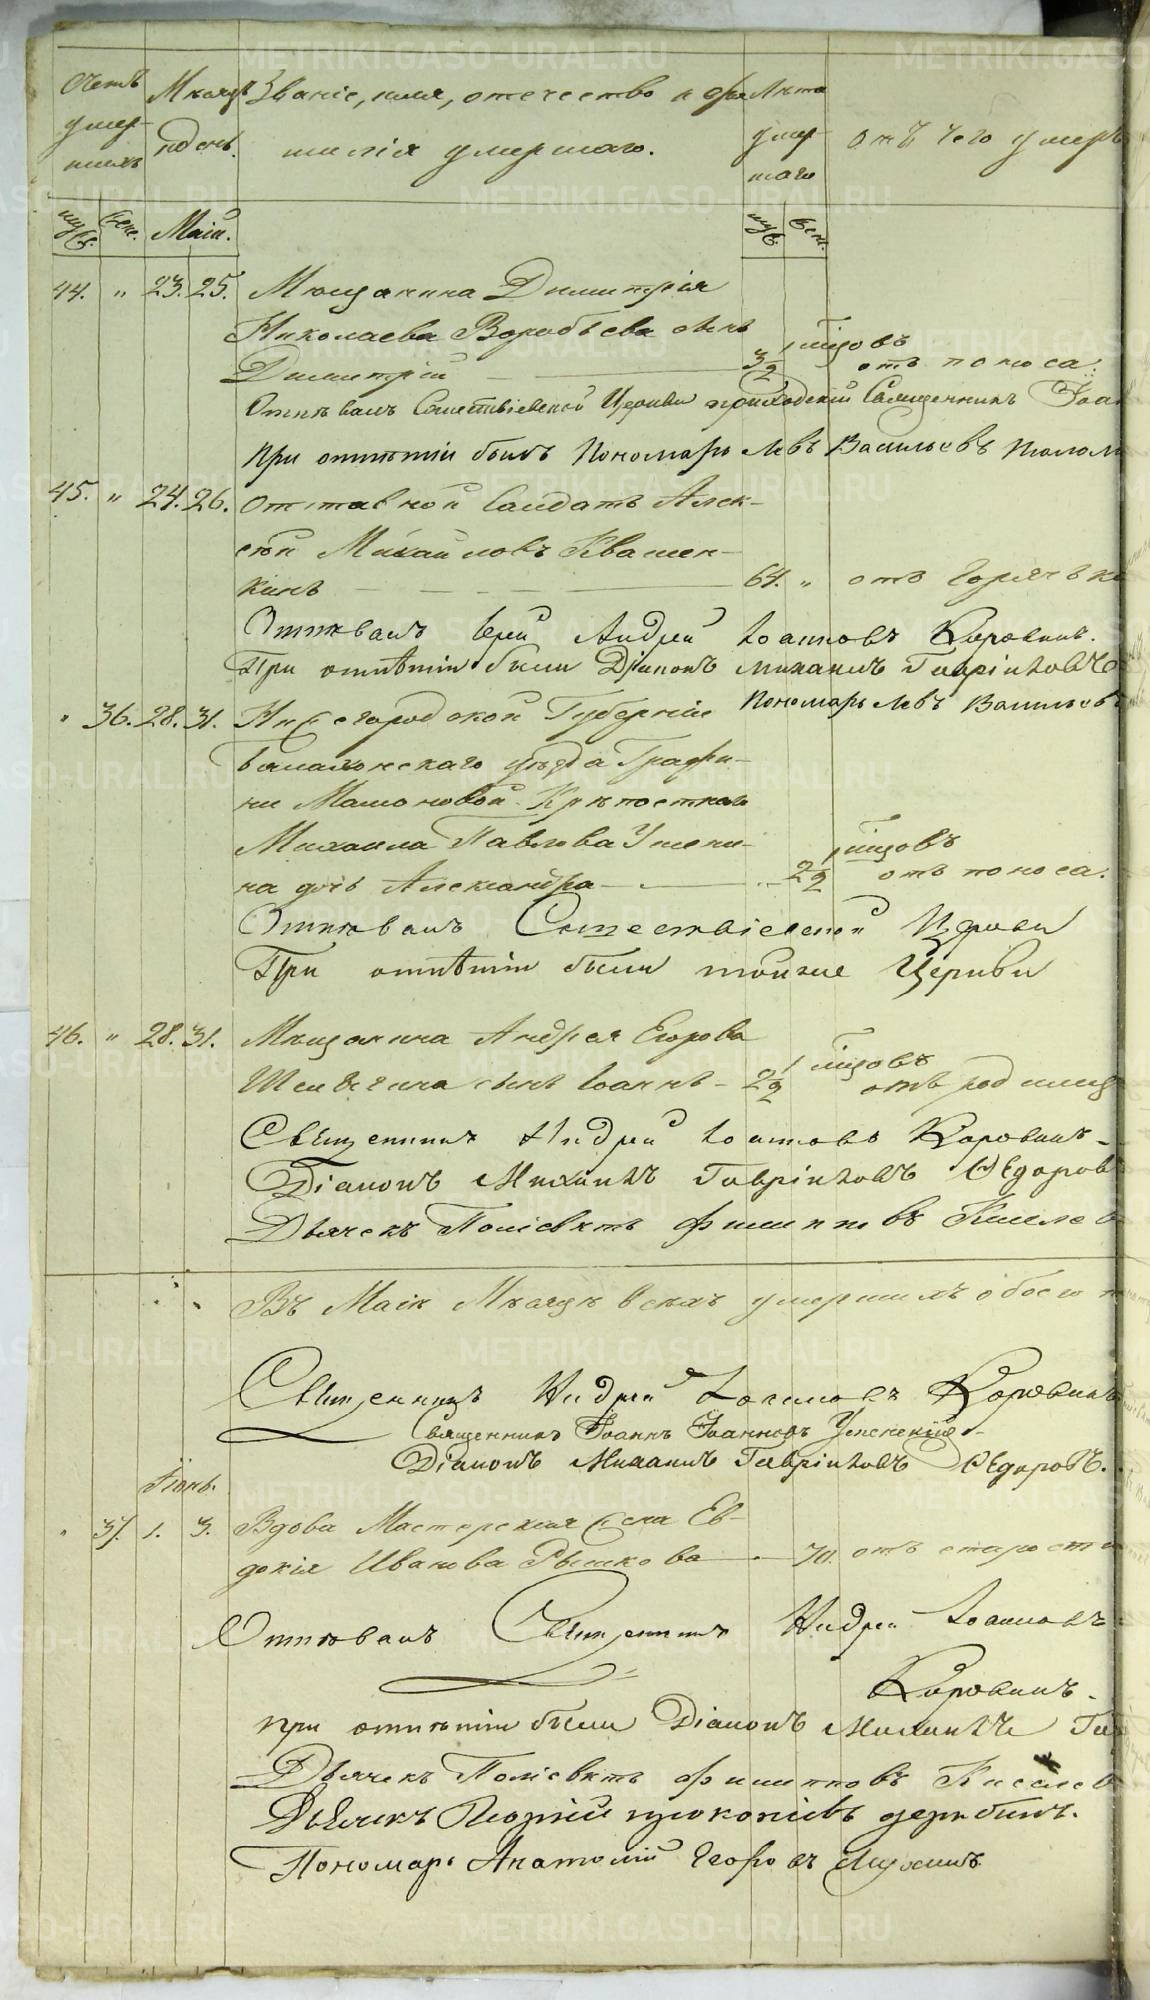 Счетъ умер-шихъ
Мѣсяцъ и день.
Званіе, имя, отечество и фа-
милія умершаго.
Лѣта умер-шаго
отъ чего умеръ
муж. жен. Маій. муж. жен.
44. " 23. 25. Мѣщанина Димитрія
Николаева Воробьева сынъ
Димитрій 3 1/2 мѣсяцовъ отъ поноса.
Отпѣвалъ Сошествіевской Церкви приходскій Священникъ Іоан
при отпѣтіи былъ Пономарь Левъ Васильевъ
45. " 24. 26. Отставной Солдатъ Алек-
сѣй Михайловъ Квашен-
кинъ 64. " отъ Горячки
Отпѣвалъ Іерей Андрей Іоанновъ Коровинъ.
При отпѣтіи были Діаконъ Михаилъ Гавріиловъ
Пономарь Левъ Васильевъ
" 36. 28. 31. Нижегородской Губерніи
Балахонскаго уѣзда Графи-
ни Мамоновой Крѣпостнаго
Михаила Павлова
на дочь Александра 2 1/2 мѣсяцовъ отъ поноса.
Отпѣвалъ Сошествіевской Церкви
При отпѣтіи были тойже Церкви
46. " 28. 31. Мѣщанина Андрея Егорова
сынъ Іоаннъ 2 1/2 мѣсяцовъ отъ родимц
Священникъ Андрей Іоанновъ Коровинъ
Діаконъ Михаилъ Гавріиловъ Ѳедоров
Дьячекъ Поліевктъ Филипповъ Киселев
Въ Маіѣ Мѣсяцѣ всѣхъ умершихъ обоего п
Священникъ Андрей Іоанновъ Коровинъ
Священникъ Іоаннъ Іоанновъ Успенскій
Діаконъ Михаилъ Гавріиловъ Ѳедоровъ.
Іюнь.
" 37. 1. 3. Вдова Мастерская жена Ев-
докія Иванова Рышкова 70. отъ старости
Отпѣвалъ Священникъ Андрей Іоанновъ
Коровинъ.
при отпѣтіи были Діаконъ Михаилъ Гав
Дьячекъ Поліевктъ Филипповъ Киселев
Дьячекъ Георгій Прокопіевъ Дерябинъ.
Пономарь Анатолій Егоровъ
METRIKI.GASO-URAL.RU